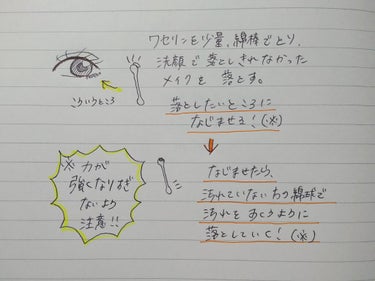 ワセリンを少量、綿棒でとり、
洗顔で落としきれなかった
メイクを 落とす。
こういうところ
落としたいところに
なじませる！(※)
※ 力が
強くなりすぎ
ないよう
注意!!
なじませたら、
汚れていない方の綿球で
汚れを ぬぐうように
落としていく！(※)